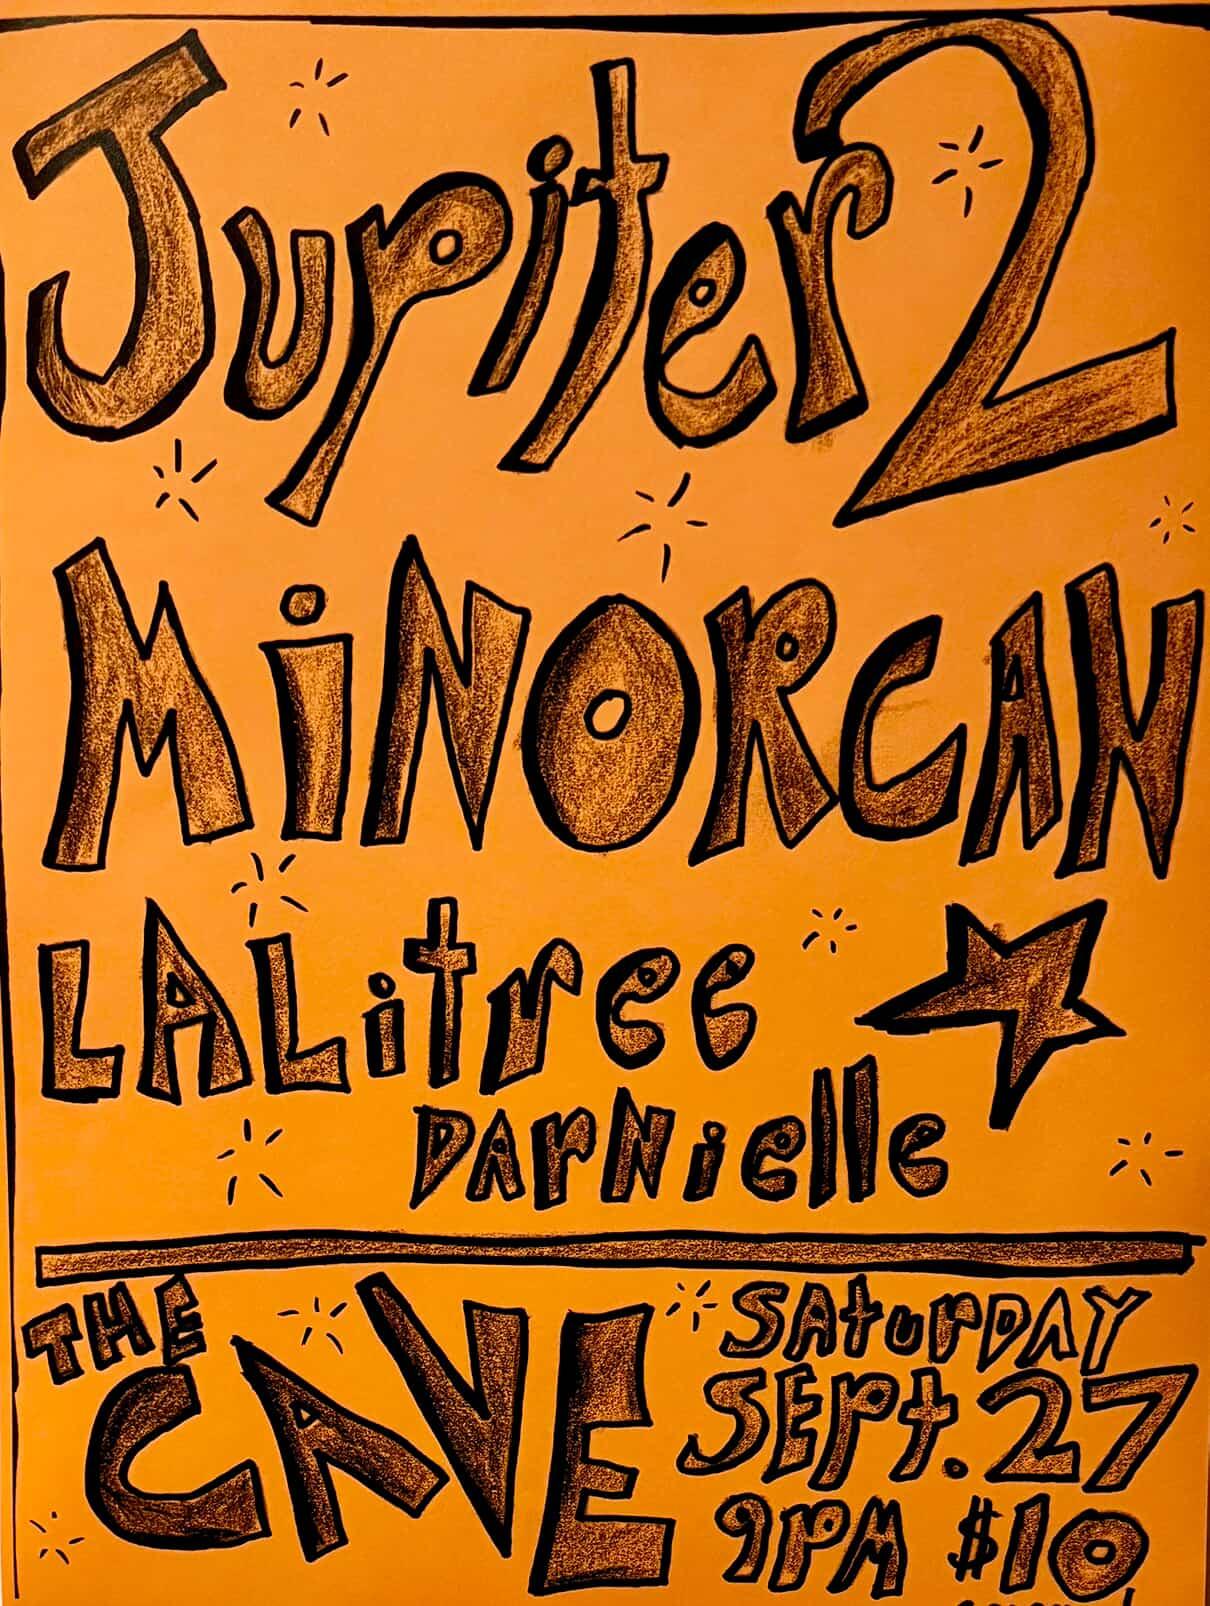 Jupiter 2
MiNORCAN
LALitree
DARNielle
THE
CAVE
SAturDAY
SEPt. 27
9PM $10